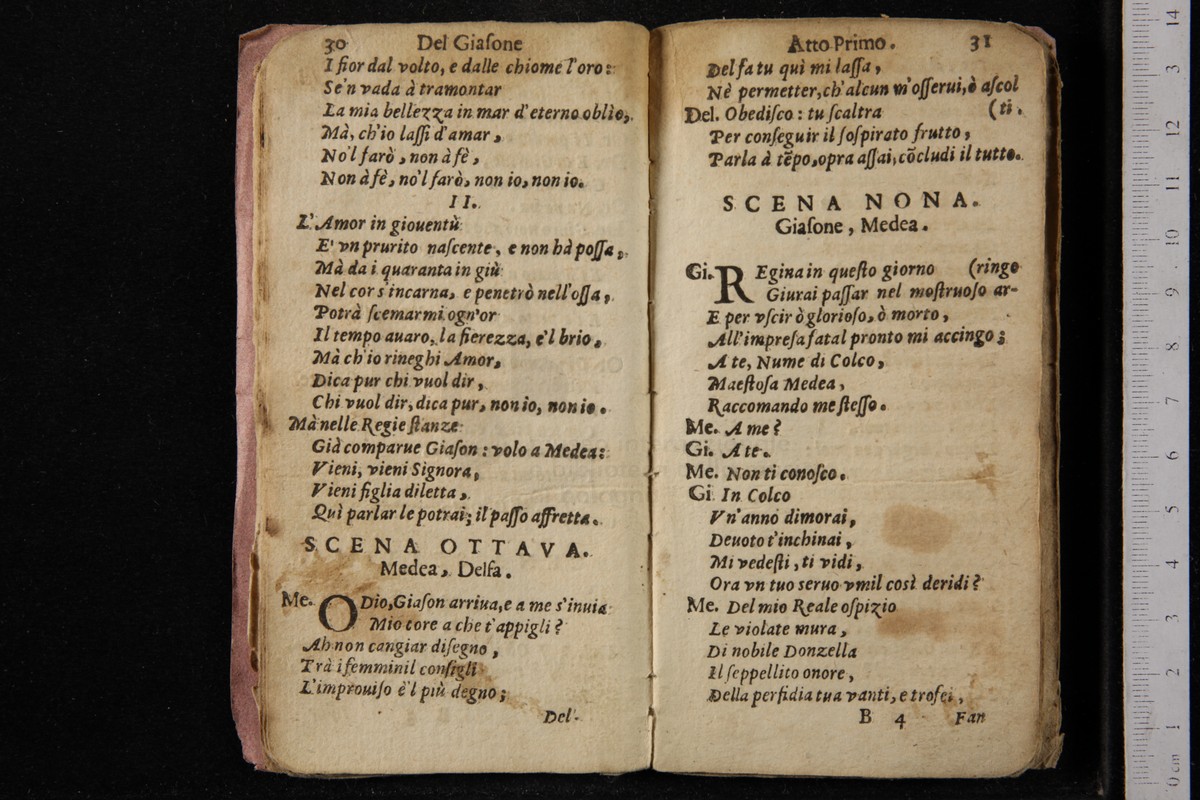 30 Del Giaſone
I fior dal volto, e dalle chiome l'oro:
Se'n vada à tramontar
La mia bellezza in mar d'eterno oblìo,
Mà, ch'io laſſi d'amar,
No'l farò, non à fè,
Non à fè, no'l farò, non io, non io.
II.
L'Amor in giouentù
E' vn prurito naſcente, e non hà poſſa,
Mà da i quaranta in giù
Nel cor s'incarna, e penetrò nell'oſſa,
Potrà ſcemarmi ogn'or
Il tempo auaro, la fierezza, e'l brio,
Mà ch'io rineghi Amor,
Dica pur chi vuol dir,
Chi vuol dir, dica pur, non io, non io.
Mà nelle Regie ſtanze
Già comparue Giaſon: volo a Medea:
Vieni, vieni Signora,
Vieni figlia diletta,
Quì parlar le potrai; il paſſo affretta.
SCENA OTTAVA.
Medea, Delfa.
Me. O Dio, Giaſon arriua, e a me s'inuia
Mio core a che t'appigli?
Ah non cangiar diſegno,
Trà i femminil conſigli
L'improuiſo è'l più degno;
Del-
Atto Primo. 31
Delfa tu quì mi laſſa,
Nè permetter, ch'alcun m'oſſerui, ò aſcol
Del. Obediſco: tu ſcaltra (ti.
Per conſeguir il ſoſpirato frutto,
Parla à tẽpo, opra aſſai, cõcludi il tutto.
SCENA NONA.
Giaſone, Medea.
Gi. REgina in queſto giorno (ringo
Giurai paſſar nel moſtruoſo ar-
E per vſcir ò glorioſo, ò morto,
All'impreſa fatal pronto mi accingo;
A te, Nume di Colco,
Maeſtoſa Medea,
Raccomando me ſteſſo.
Me. A me?
Gi. A te.
Me. Non ti conoſco.
Gi. In Colco
Vn'anno dimorai,
Deuoto t'inchinai,
Mi vedeſti, ti vidi,
Ora vn tuo ſeruo vmil così deridi?
Me. Del mio Reale oſpizio
Le violate mura,
Di nobile Donzella
Il ſeppellito onore,
Della perfidia tua vanti, e trofei,
B 4 Fan
14
13
12
11
10
9
8
7
6
5
4
3
2
1
0 cm